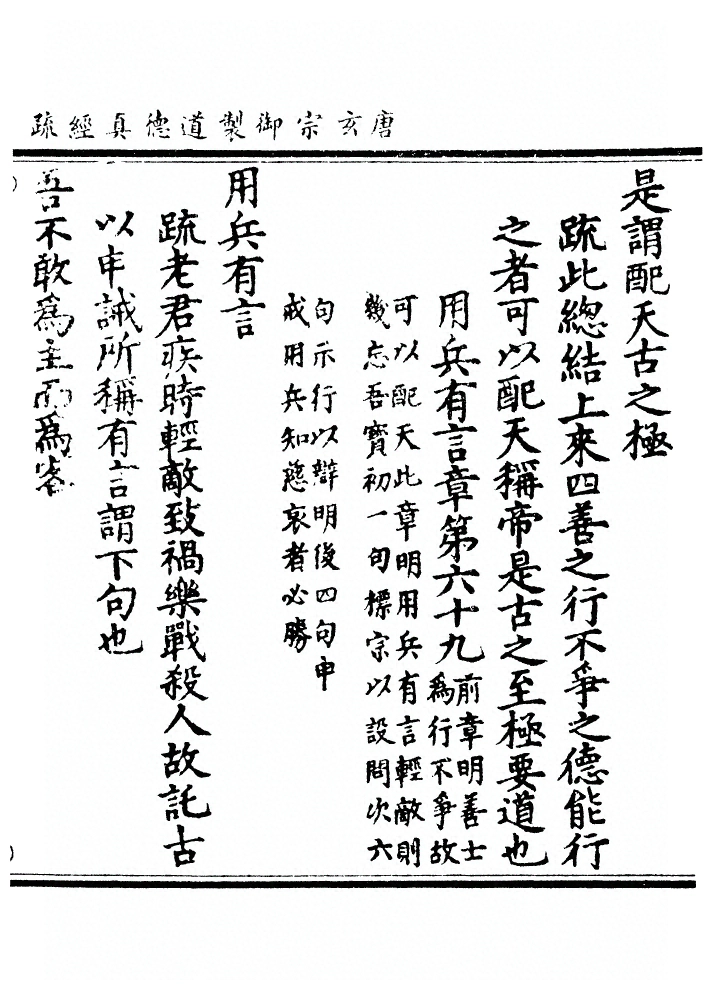 唐玄宗御製道德真經疏
是謂配天古之極
疏此總結上來四善之行不爭之德能行
之者可以配天稱帝是古之至極要道也
用兵有言章第六十九
前章明善士
爲行不爭故
可以配天此章明用兵有言輕敵則
幾忘吾寶初一句標宗以設問次六
句示行以辯明後四句申
戒用兵知慈哀者必勝
用兵有言
疏老君疾時輕敵致禍樂戰殺人故託古
以申誡所稱有言謂下句也
吾不敢爲主而爲客